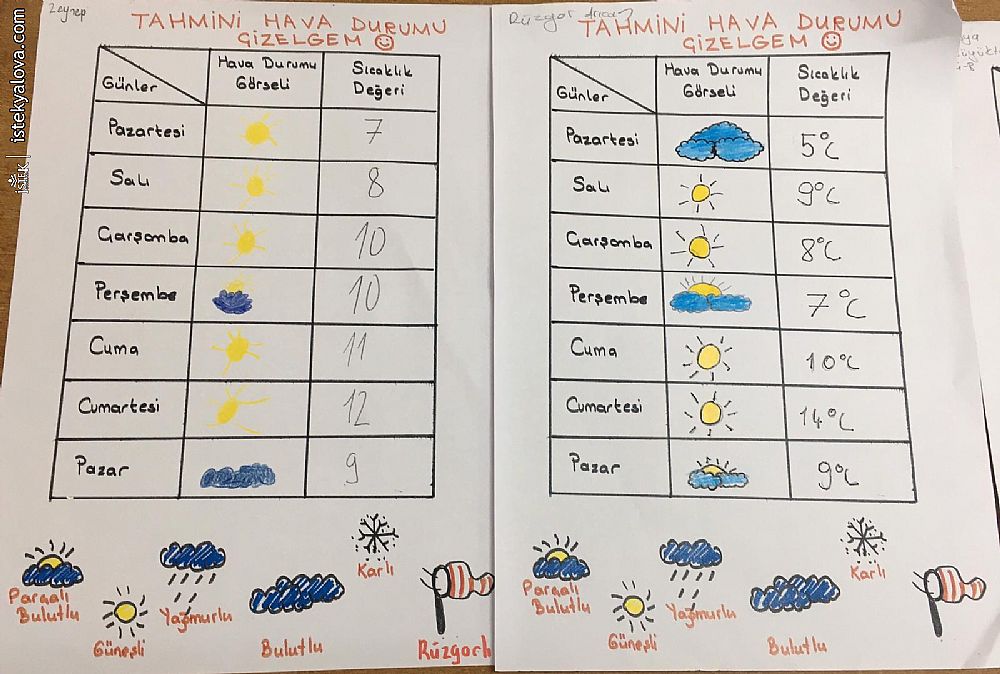 Zeynep
TAHMİNİ HAVA DURUMU
ÇİZELGEM
Günler
Hava Durumu
Görseli
Sıcaklık
Değeri
Pazartesi
7
Salı
8
Çarşamba
10
Perşembe
10
Cuma
11
Cumartesi
12
Pazar
9
Parçalı
Bulutlu
Güneşli
Yağmurlu
Bulutlu
Karlı
Rüzgarlı
Rüzgar
TAHMİNİ HAVA DURUMU
ÇİZELGEM
Günler
Hava Durumu
Görseli
Sıcaklık
Değeri
Pazartesi
5°C
Salı
9°C
Çarşamba
8°C
Perşembe
7°C
Cuma
10°C
Cumartesi
14°C
Pazar
9°C
Parçalı
Bulutlu
Güneşli
Yağmurlu
Bulutlu
Karlı
iŞTK | istekyalova.com